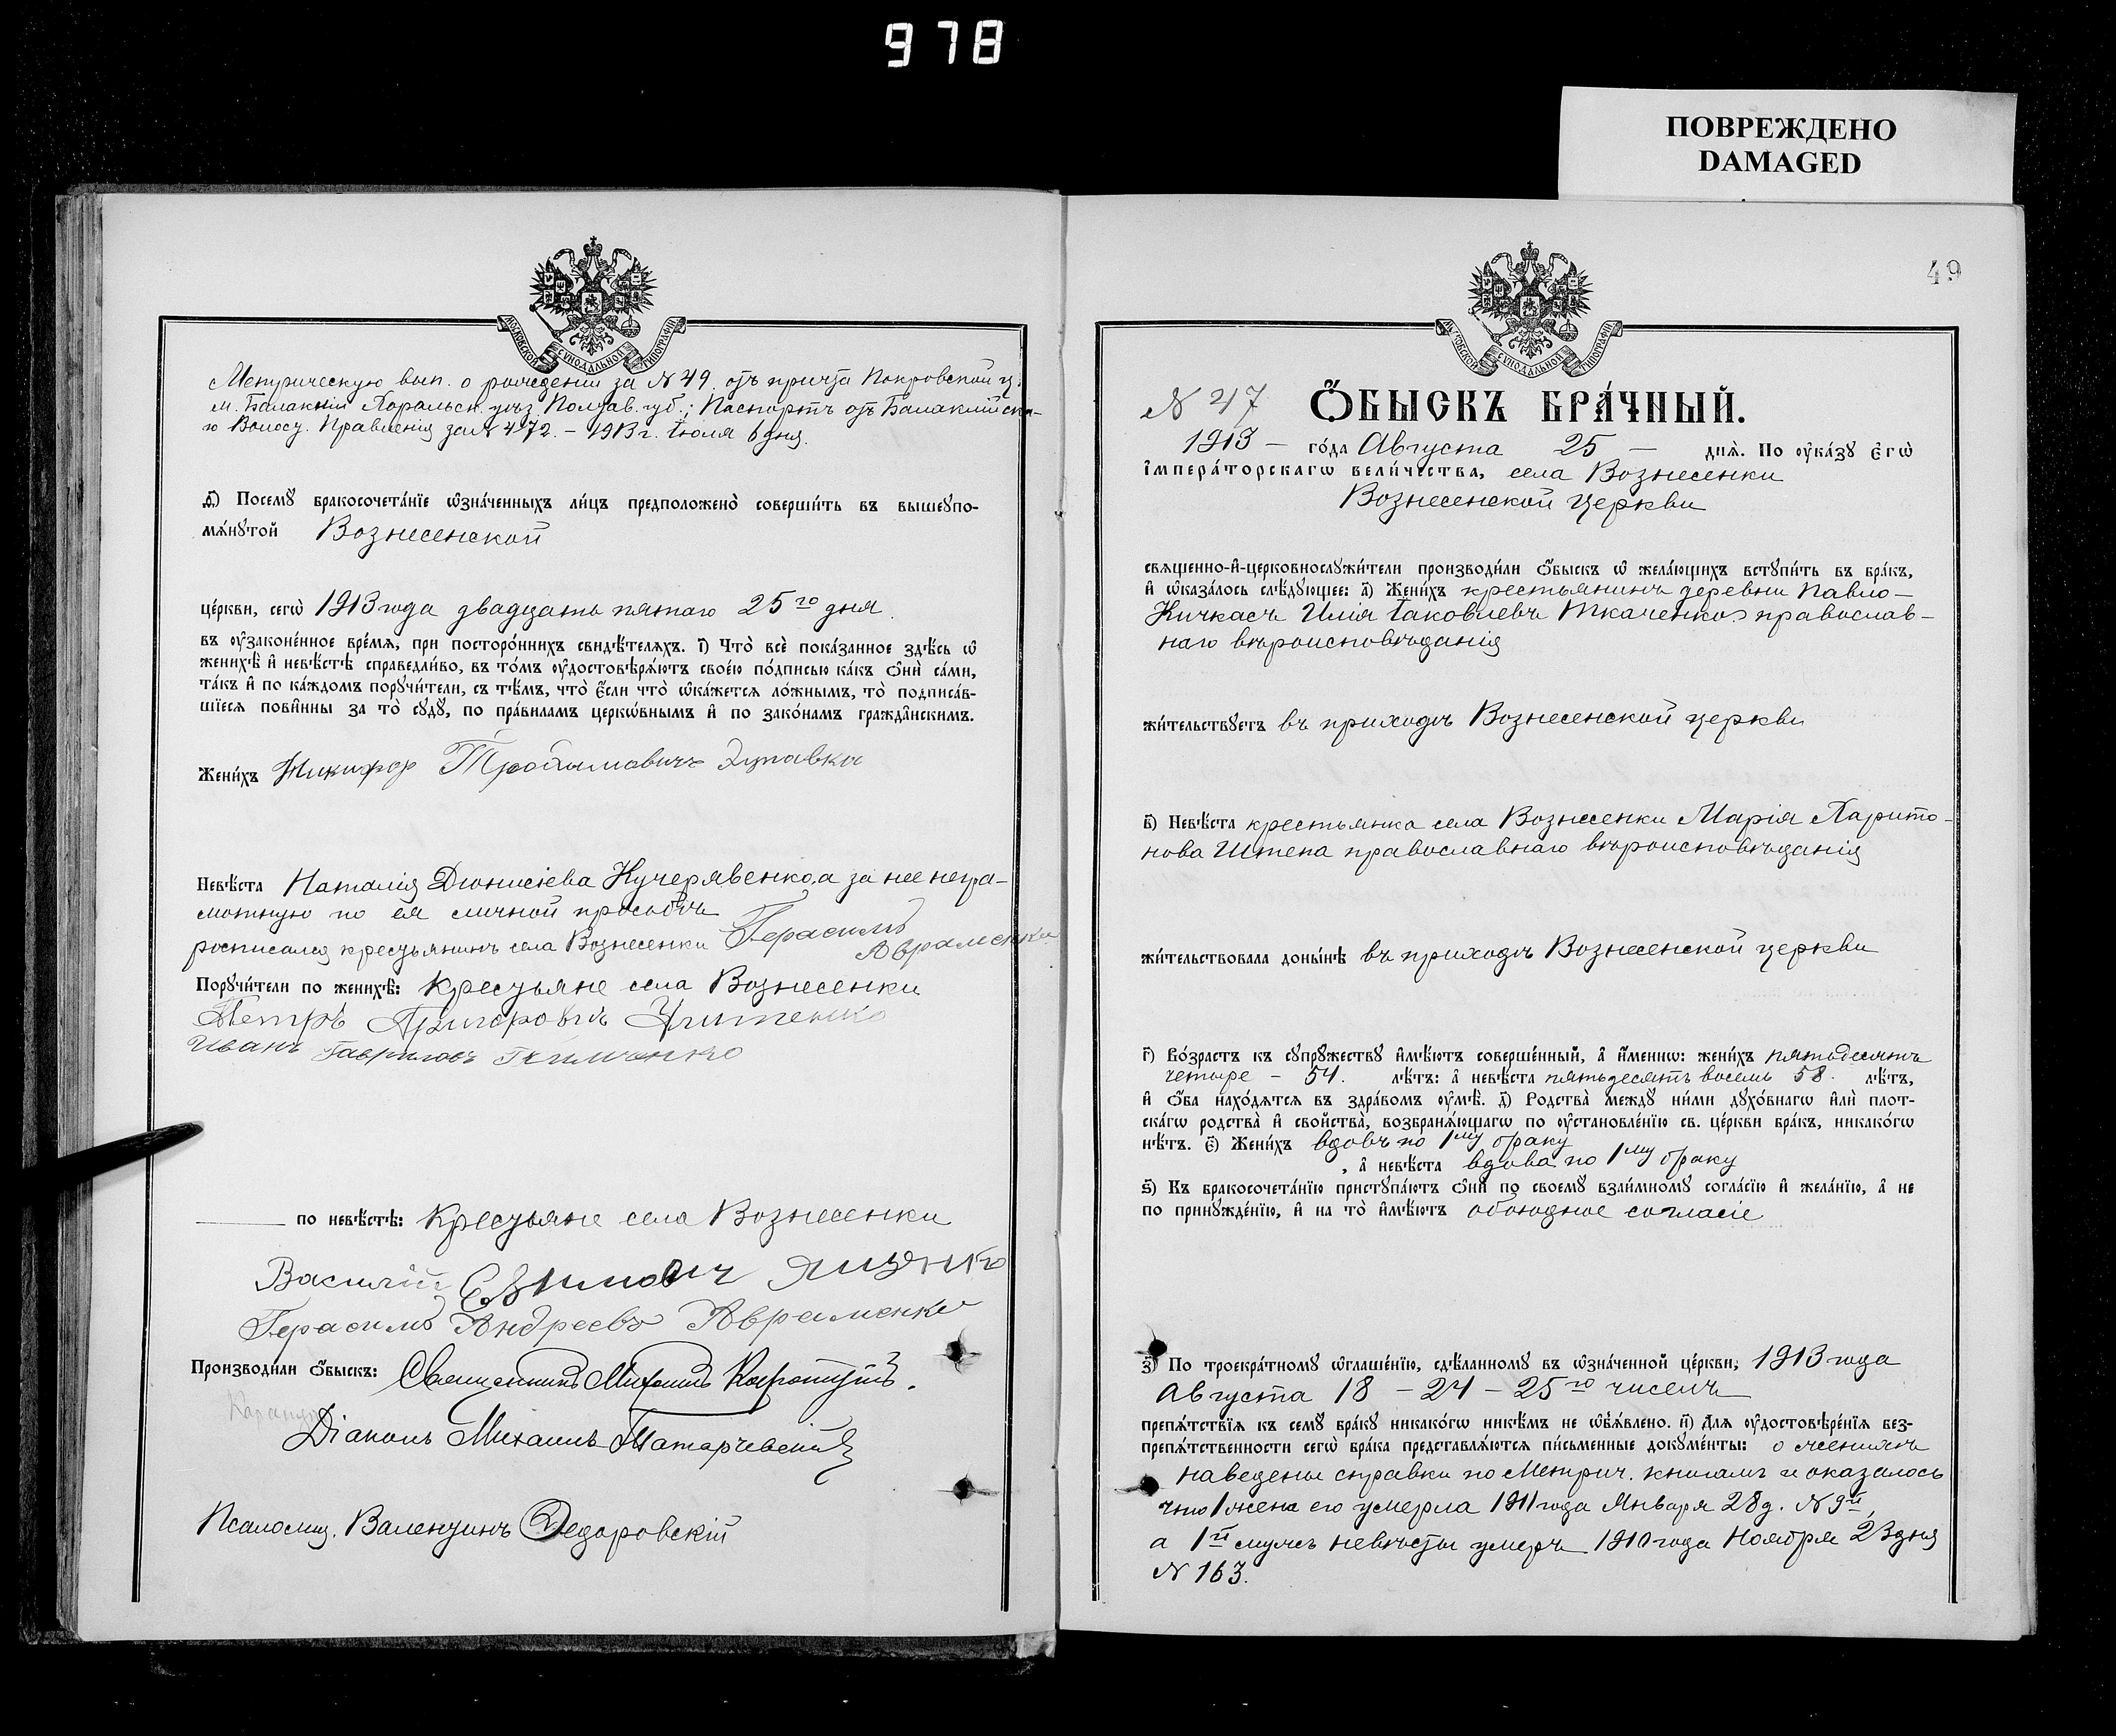 978
ПОВРЕЖДЕНО
DAMAGED
МОСКОВСКОЙ СѴНОДАЛЬНОЙ ТИПОГРАФІИ
Метрическую вып. о рождении за № 49. отъ причта Покровской ц.
м. Балаклии Хорольск. уѣз. Полтав. губ.; Паспортъ отъ Балаклийска-
го Волост. Правления за № 472. – 1913 г. Іюля 6 дня.
д҃) Посемꙋ бракосочета́нїе ѡ҆зна́ченныхъ ли́цъ предположено̀ соверши́ть въ вышеꙋпо-
мѧ́нꙋтой Вознесенской
це́ркви, сегѡ̀ 1913 года двадцать пятаго 25го дня.
въ ᲂу҆законе́нное вре́мѧ, при посторо́ннихъ свидѣ́телѧхъ. і҃) Что̀ всѐ пока́занное здѣ́сь ѡ҆
женихѣ̀ и҆ невѣ́стѣ справедли́во, въ то́мъ ᲂу҆достовѣрѧ́ютъ свое́ю по́дписью ка́къ ѻ҆нѝ са́ми,
та́къ и҆ по ка́ждомъ порꙋчи́тели, съ тѣ́мъ, что̀ є҆́сли что̀ ѡ҆ка́жетсѧ ло́жнымъ, то̀ подписа́в-
шїесѧ пови́нны за то̀ сꙋдꙋ̀, по пра́виламъ церко́внымъ и҆ по зако́намъ гражда́нскимъ.
Жени́хъ Никифор Трофимовичъ
Невѣ́ста Наталія Діонисіева Кучерявенко, а за нее негра-
мотную по ея личной просьбѣ
росписался крестьянинъ села Вознесенки Герасимъ
Авраменко
Порꙋчи́тели по женихѣ̀: Крестьяне села Вознесенки
Петръ Григоровичъ
Иванъ Гавриловъ
по невѣ́стѣ: Крестьяне села Вознесенки
Василій Ефимович Яценко
Герасимъ Андреевъ Авраменко
Производи́ли ѻ҆́быскъ: Священникъ Михаилъ
Діаконъ Михаилъ Татарчевскій
Псаломщ. Валентинъ Федоровскій
49
МОСКОВСКОЙ СѴНОДАЛЬНОЙ ТИПОГРАФІИ
№ 47 Ѻ҆́БЫСКЪ БРА́ЧНЫЙ.
1913 – го́да Августа 25 – днѧ̀. По ᲂу҆ка́зꙋ Є҆гѡ̀
і҆мпера́торскагѡ вели́чества, села Вознесенки
Вознесенской церкви
свѧще́нно-и҆-церковнослꙋжи́тели производи́ли ѻ҆́быскъ ѡ҆ жела́ющихъ встꙋпи́ть въ бра́къ,
и҆ ѡ҆каза́лось слѣ́дꙋющее: а҃) Жени́хъ крестьянинъ деревни Павло-
Кичкасъ Илія Іаковлевъ Ткаченко православ-
наго вѣроисповѣданія
жи́тельствꙋетъ въ приходѣ Вознесенской церкви
в҃) Невѣ́ста крестьянка села Вознесенки Марія Харито-
нова Штепа православнаго вѣроисповѣданія
жи́тельствовала доны́нѣ въ приходѣ Вознесенской церкви
г҃) Во́зрастъ къ сꙋпрꙋ́жествꙋ и҆мѣ́ютъ соверше́нный, а҆ и҆́меннѡ: жени́хъ пятьдесятъ
четыре – 54. лѣ́тъ: а҆ невѣ́ста пятьдесятъ восемь 58. лѣ́тъ,
и҆ ѻ҆́ба нахо́дѧтсѧ въ здра́вомъ ᲂу҆мѣ̀. д҃) Родства̀ междꙋ̀ ни́ми дꙋхо́внагѡ и҆лѝ плот-
ска́гѡ родства̀ и҆ свойства̀, возбранѧ́ющагѡ по ᲂу҆становле́нїю св. це́ркви бра́къ, никако́гѡ
нѣ́тъ. є҃) Жени́хъ вдовъ по 1му браку
, а҆ невѣ́ста вдова по 1му браку
ѕ҃) Къ бракосочета́нїю пристꙋпа́ютъ ѻ҆нѝ по своемꙋ̀ взаи́мномꙋ согла́сїю и҆ жела́нїю, а҆ не
по принꙋжде́нїю, и҆ на то̀ и҆мѣ́ютъ обоюдное согласіе
з҃) По троекра́тномꙋ ѡ҆глаше́нїю, сдѣ́ланномꙋ въ ѡ҆зна́ченной це́ркви, 1913 года
Августа 18 – 24 – 25го чиселъ
препѧ́тствїѧ къ семꙋ̀ бра́кꙋ никако́гѡ никѣ́мъ не ѡ҆б̾ѧ́влено. и҃) Длѧ ᲂу҆достовѣре́нїѧ без-
препѧ́тственности сегѡ̀ бра́ка представлѧ́ютсѧ пи́сьменные докꙋме́нты: о женихѣ
наведены справки по Метрич. книгамъ и оказалось
что 1 жена его умерла 1911 года Января 28 д. № 9й,
а 1й мужъ невѣсты умеръ 1910 года Ноября 23 дня
№ 163.